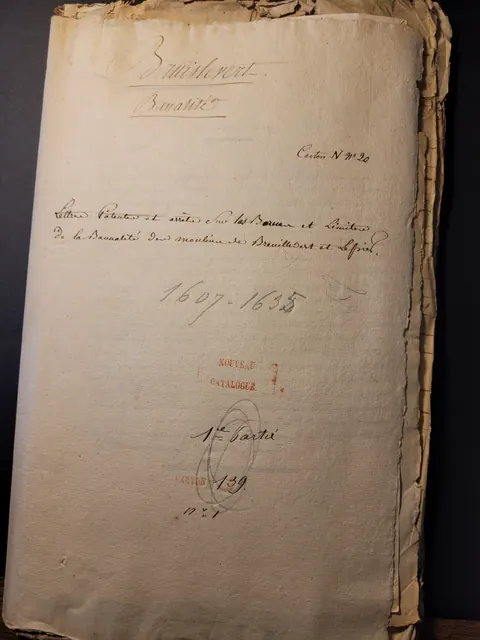 Bruislevert.
Banalité
Carton N nº 20
Lettres Patentes et arrêts sur les Bornes et Limites
de la Bannalité des moulins de Breuillevert et
1607-1635
NOUVEAU
CATALOGUE
1re Partie
CARTON 139.
nº 1